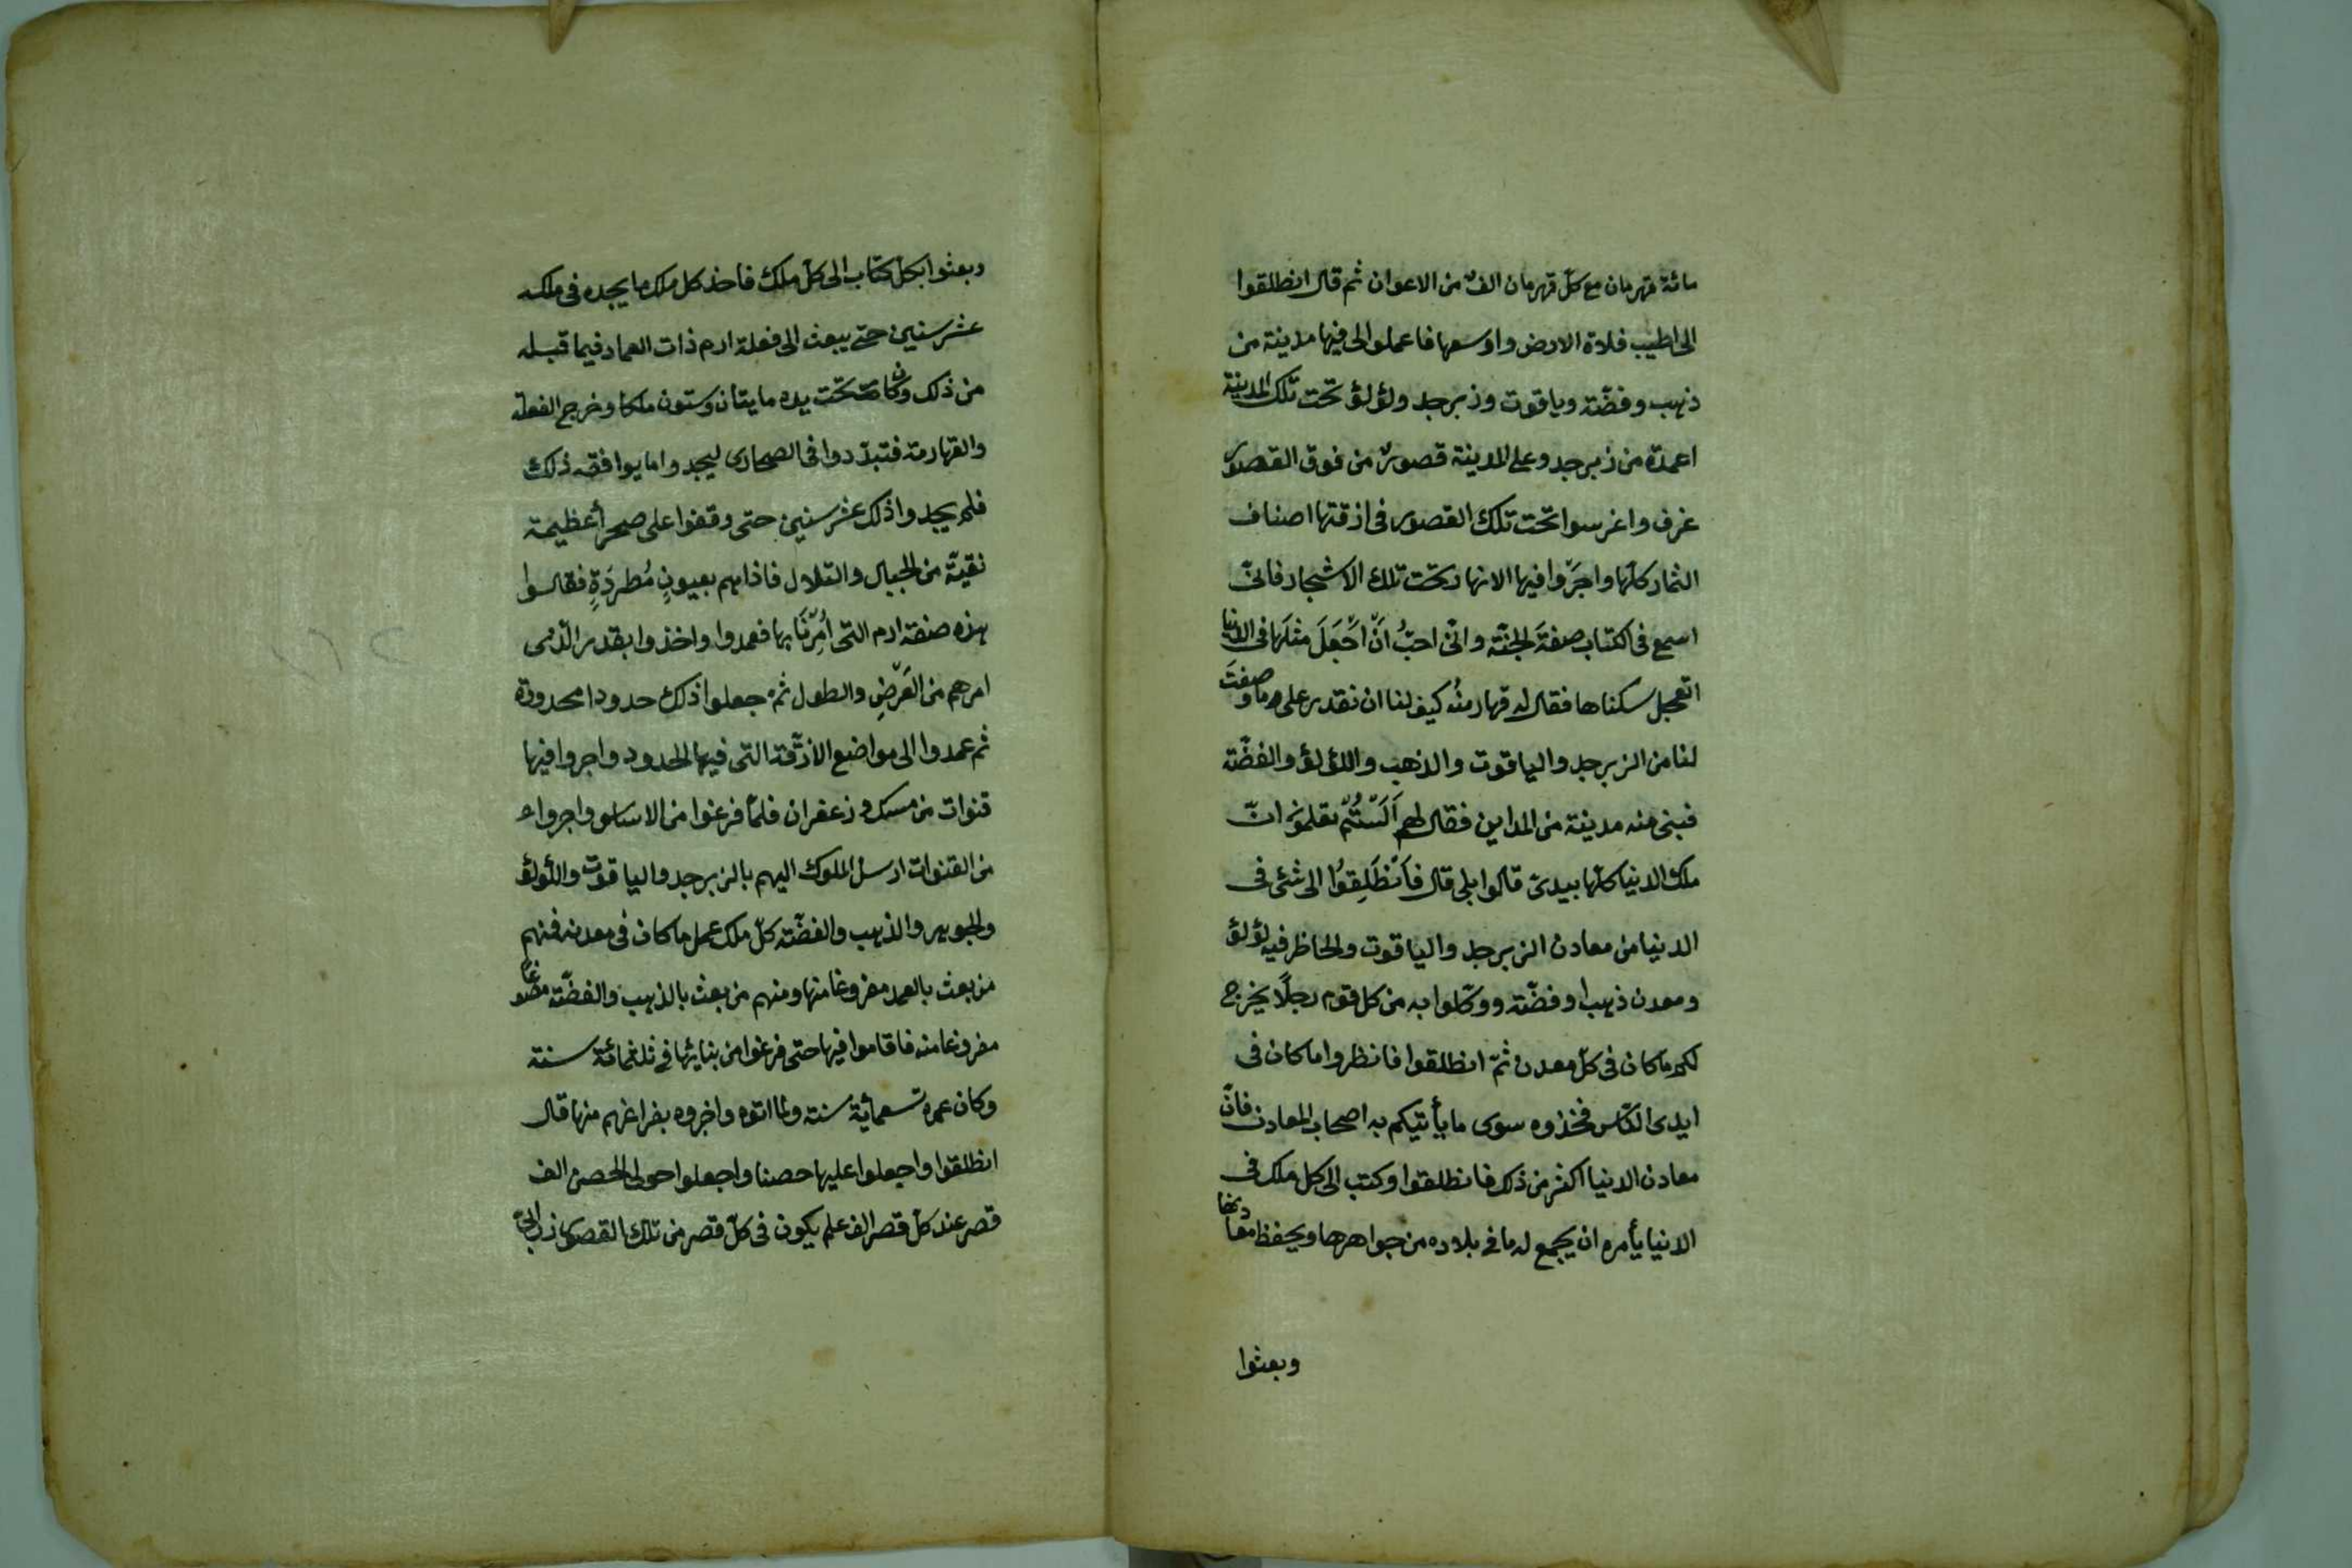 مائة قهرمان مع كلّ قهرمان الف من الاعوان ثم قال انطلقوا
الى اطيب فلاة الارض واوسعها فاعملوا لى فيها مدينة من
ذهب وفضّة وياقوت وزبرجد ولؤلؤ تحت تلك المدينة
اعمدة من زبرجد وعلى المدينة قصورٌ من فوق القصور
غرف واغرسوا تحت تلك القصور فى ازقتها اصناف
الثمار كلّها واجرّوا فيها الانهار تحت تلك الاشجار فانّى
اسمع فى الكتاب صفةَ الجنّة وانّى احبُّ اَنّ اَجْعَلَ مثلَها فى الدنيا
اتعجل سكناها فقال له قهارمتُه كيف لنا ان نقدر على ما وصفتَ
لنا من الزبرجد والياقوت والذهب واللؤلؤ والفضّة
فبنى منه مدينة من المداين فقال لهم اَلَسْتُمْ تعلمونَ انّ
ملك الدنيا كلّها بيدىّ قالوا بلى قال فَاَنْطَلِقُوا الى شئ فى
الدنيا من معادن الزبرجد والياقوت والحاظر فيه لؤلؤ
ومعدن ذهب او فضّة ووكّلوا به من كل قوم رجلًا يخرج
لكم ما كان فى كلّ معدن ثمّ انطلقوا فانظروا ما كان فى
ايدى النّاس فخذوه سوى ما يأتيكم به اصحاب المعادن فانّ
معادن الدنيا اكثر من ذلك فانطلقوا وكتب الى كل ملك فى
الدنيا يأمره ان يجمع له ما فى بلاده من جواهرها ويحفظ معادنها
وبعثوا
وبعثوا بكلّ كتاب الى كلّ ملك فاخذ كل ملك ما يجده فى ملكه
عشر سنين حتى يبعث الى فعلة ارم ذات العماد فيما قبله
من ذلك وكان تحت يده مايتان وستون ملكا وخرج الفعلة
والقهارمة فتبدّدوا فى الصحارى ليجدوا ما يوافقه ذلك
فلم يجدوا ذلك عشر سنين حتى وقفوا على صحرأ عظيمة
نقيّة من الجبال والتلال فاذا هم بعيونٍ مُطردَةٍ فقالوا
هذه صفة ارم التى اُمِرْنَا بها فعمدوا واخذوا بقدر الّذى
امرهم من العَرْضِ والطول ثم جعلوا ذلك حدودا محدودة
ثم عمدوا الى مواضع الازقّة التى فيها الحدود واجروا فيها
قنوات من مسك وزعفران فلمّا فرغوا من الاساس واجروا
من القنوات ارسل الملوك اليهم بالزبرجد والياقوت واللؤلؤ
والجوهر والذهب والفضّة كلّ ملك عمل ما كان فى معدنه فمنهم
من بعث بالعمد مفروغا منها ومنهم من بعث بالذهب والفضّة مصوغا
مفروغا منه فاقاموا فيها حتى فرغوا من بنايها فى ثلثمائة سنة
وكان عمره تسعمائة سنة ولما اتوه واخبروه بفراغهم منها قال
انطلقوا واجعلوا عليها حصنا واجعلوا حول الحصن الف
قصر عند كلّ قصر الف علم يكون فى كلّ قصر من تلك القصور